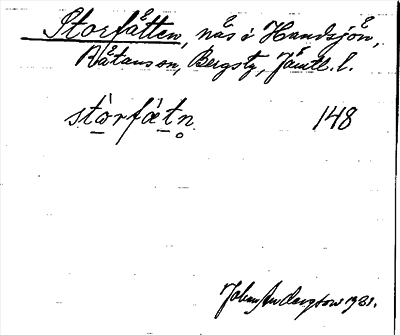 Storfåtten, näs i Handsjön,
Råtans sn, Bergs tg, Jämtl. l.
stòrfǻtn̥ 148
Johan Anderzson 1931.